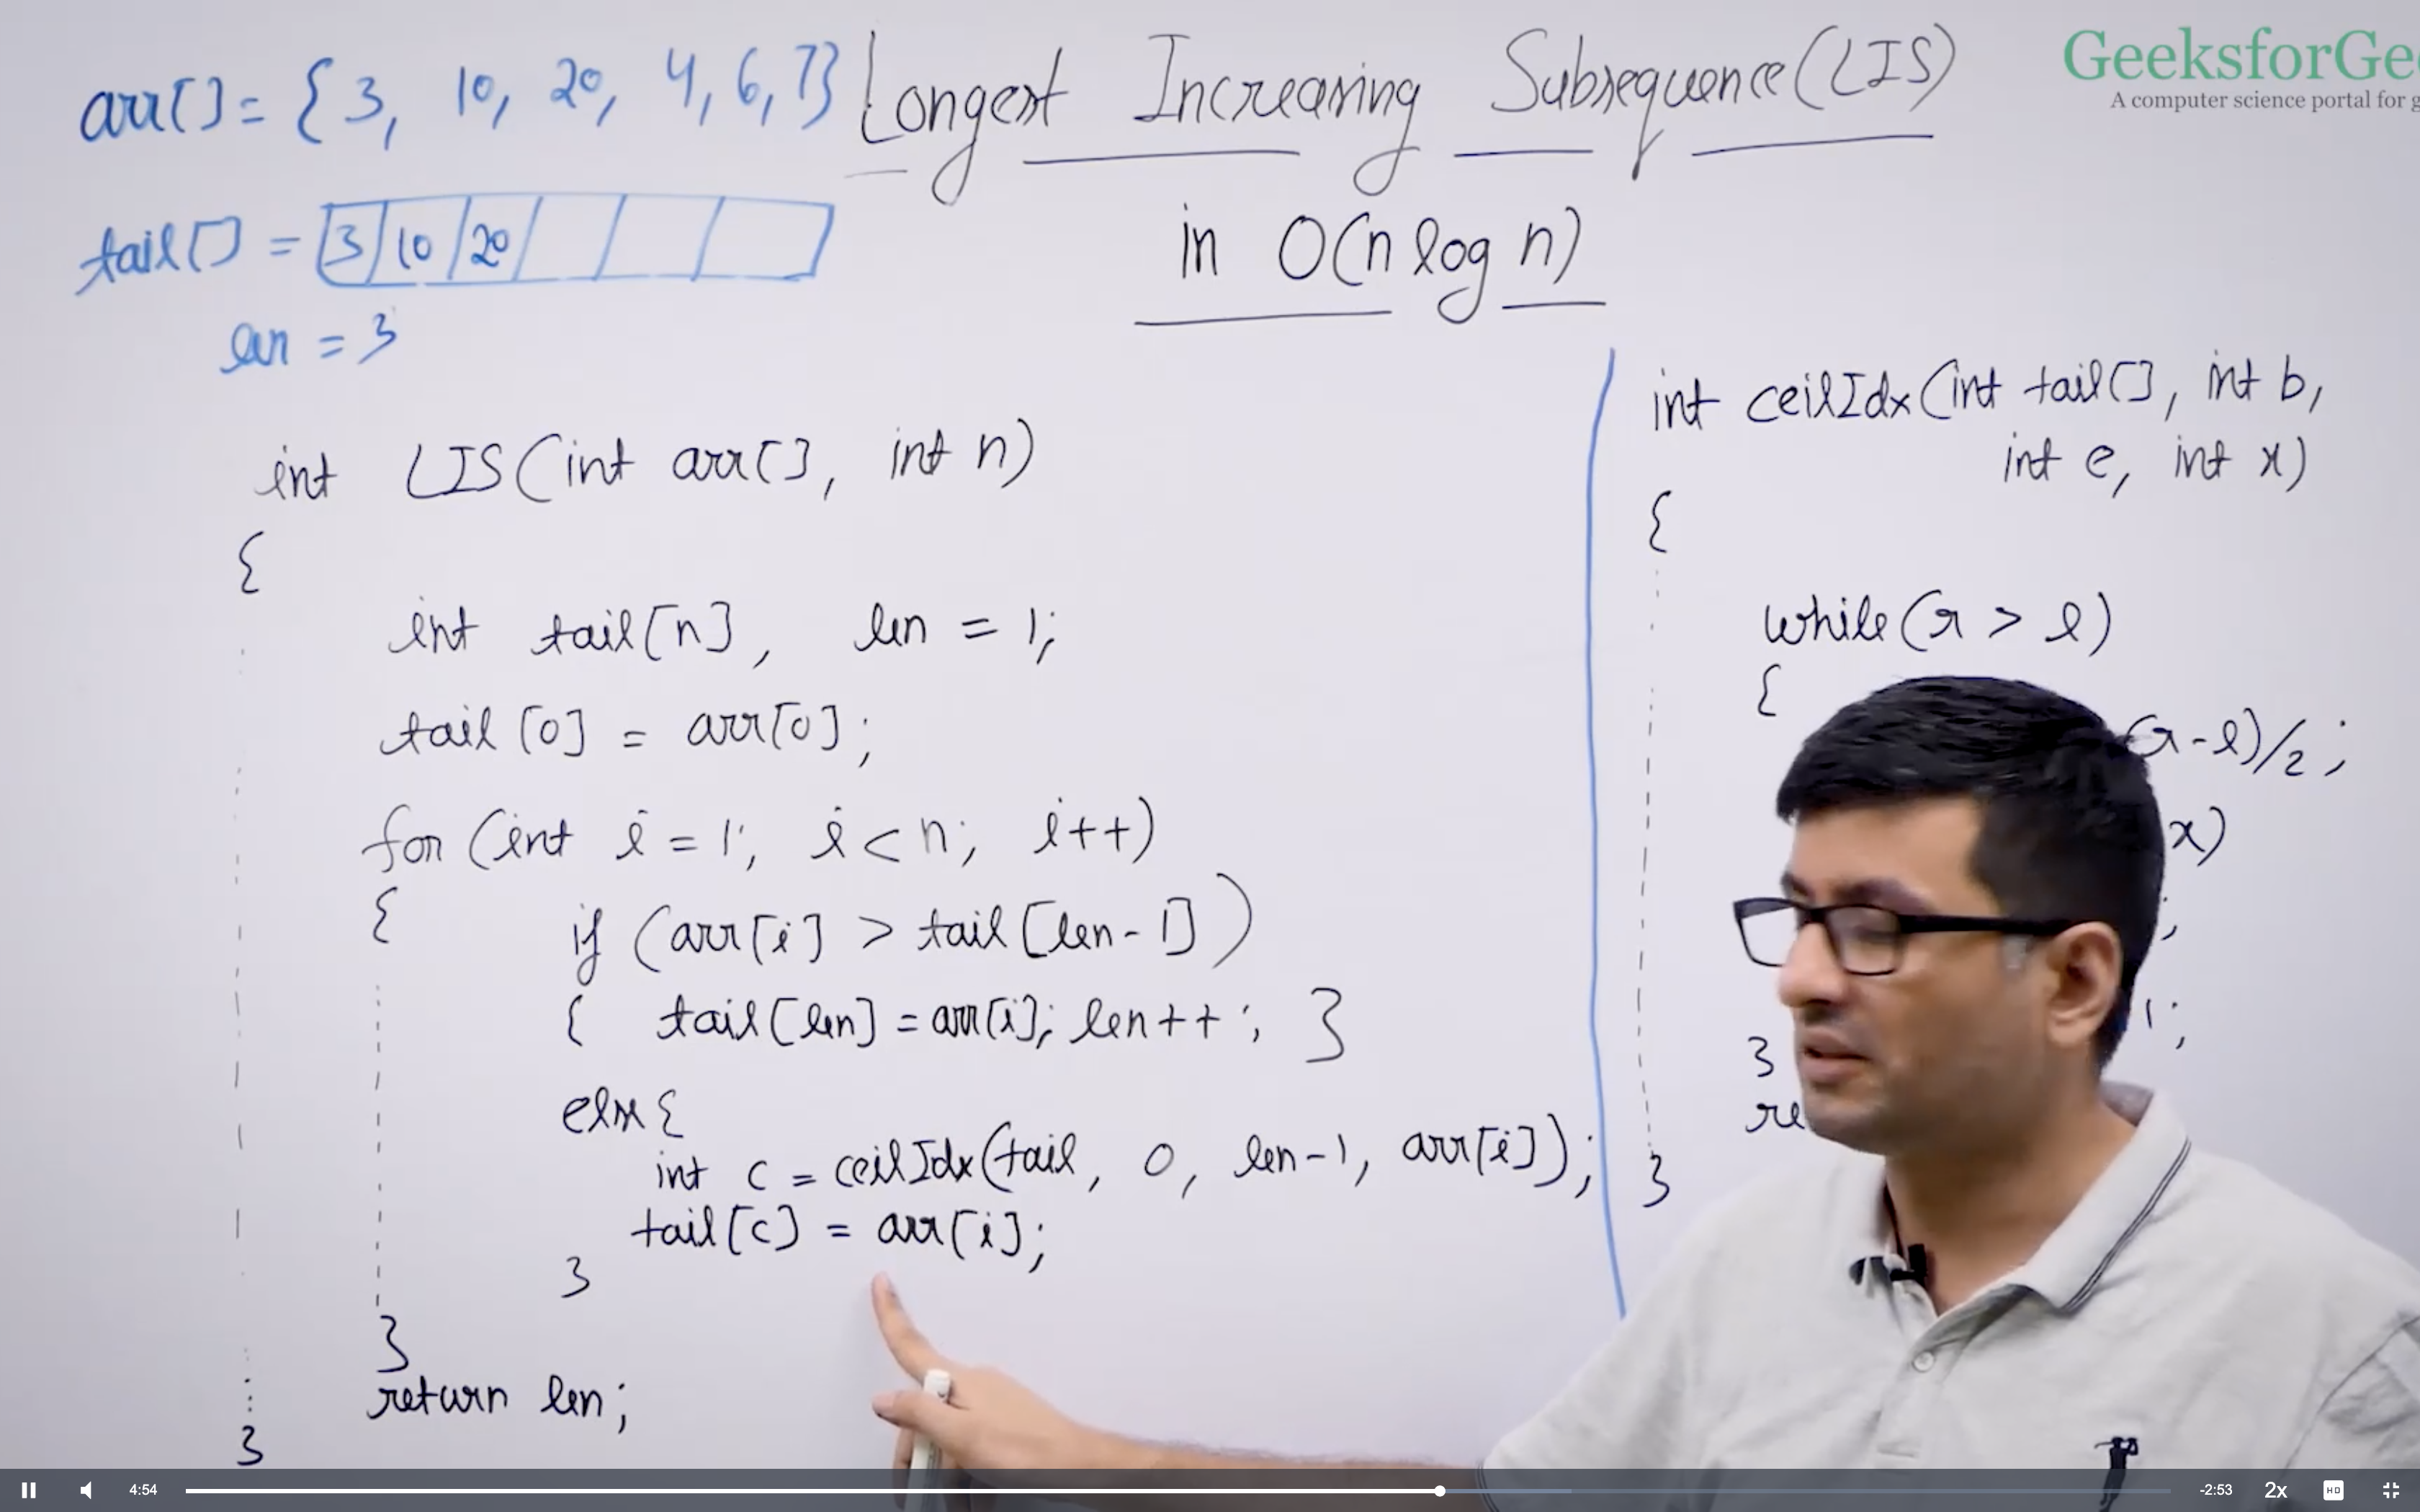 arr[] = {3, 10, 20, 4, 6, 7}
Longest Increasing Subsequence (LIS)
in O(n log n)
GeeksforGe
A computer science portal for g
tail[] = 3 10 20
len = 3
int LIS(int arr[], int n)
{
int tail[n], len = 1;
tail[0] = arr[0];
for (int i = 1; i < n; i++)
{
if (arr[i] > tail[len-1])
{ tail[len] = arr[i]; len++; }
else {
int c = ceilIdx(tail, 0, len-1, arr[i]);
tail[c] = arr[i];
}
}
return len;
}
int ceilIdx(int tail[], int b,
int e, int x)
{
while(r > l)
{
(r-l)/2;
x)
;
1;
}
re
}
4:54
-2:53
2x
HD